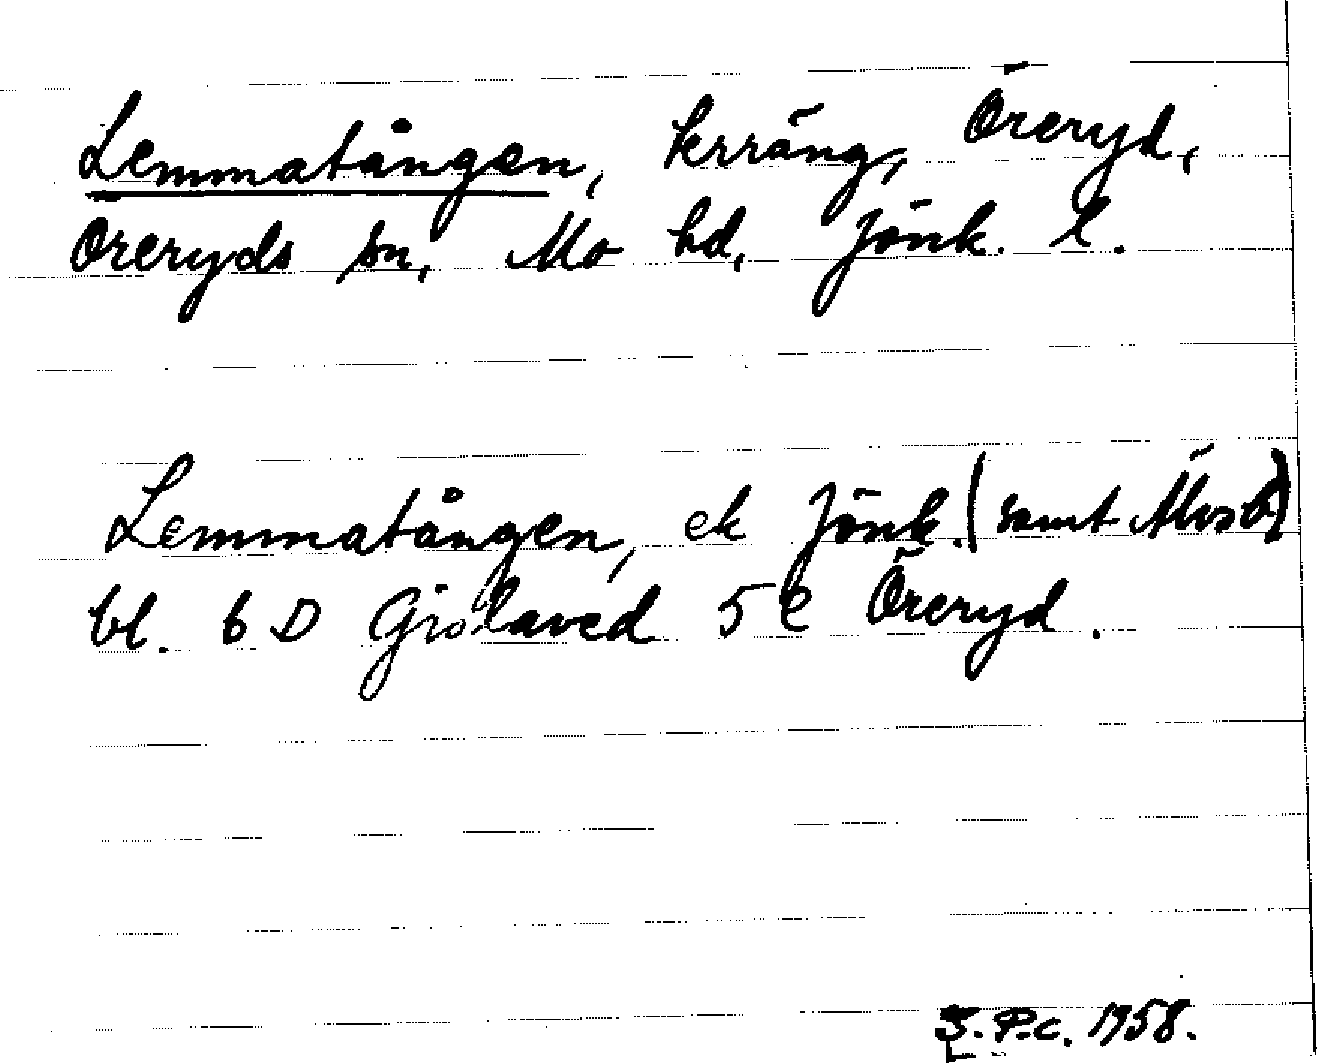 Lemmatången, terräng, Öreryd,
Öreryds sn, Mo hd, Jönk. l.
Lemmatången, ek Jönk. (samt Älvsb)
bl. 6 D Gislaved 5 e Öreryd.
J.P.c. 1958.